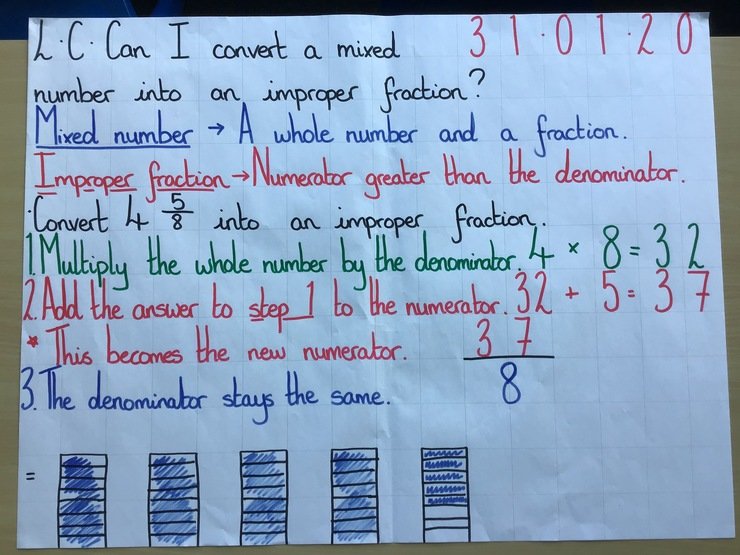 L.C. Can I convert a mixed 31.01.20
number into an improper fraction?
Mixed number → A whole number and a fraction.
Improper fraction → Numerator greater than the denominator.
Convert 4 5/8 into an improper fraction.
1. Multiply the whole number by the denominator. 4 × 8 = 32
2. Add the answer to step 1 to the numerator. 32 + 5 = 37
* This becomes the new numerator. 37
3. The denominator stays the same. 8
=